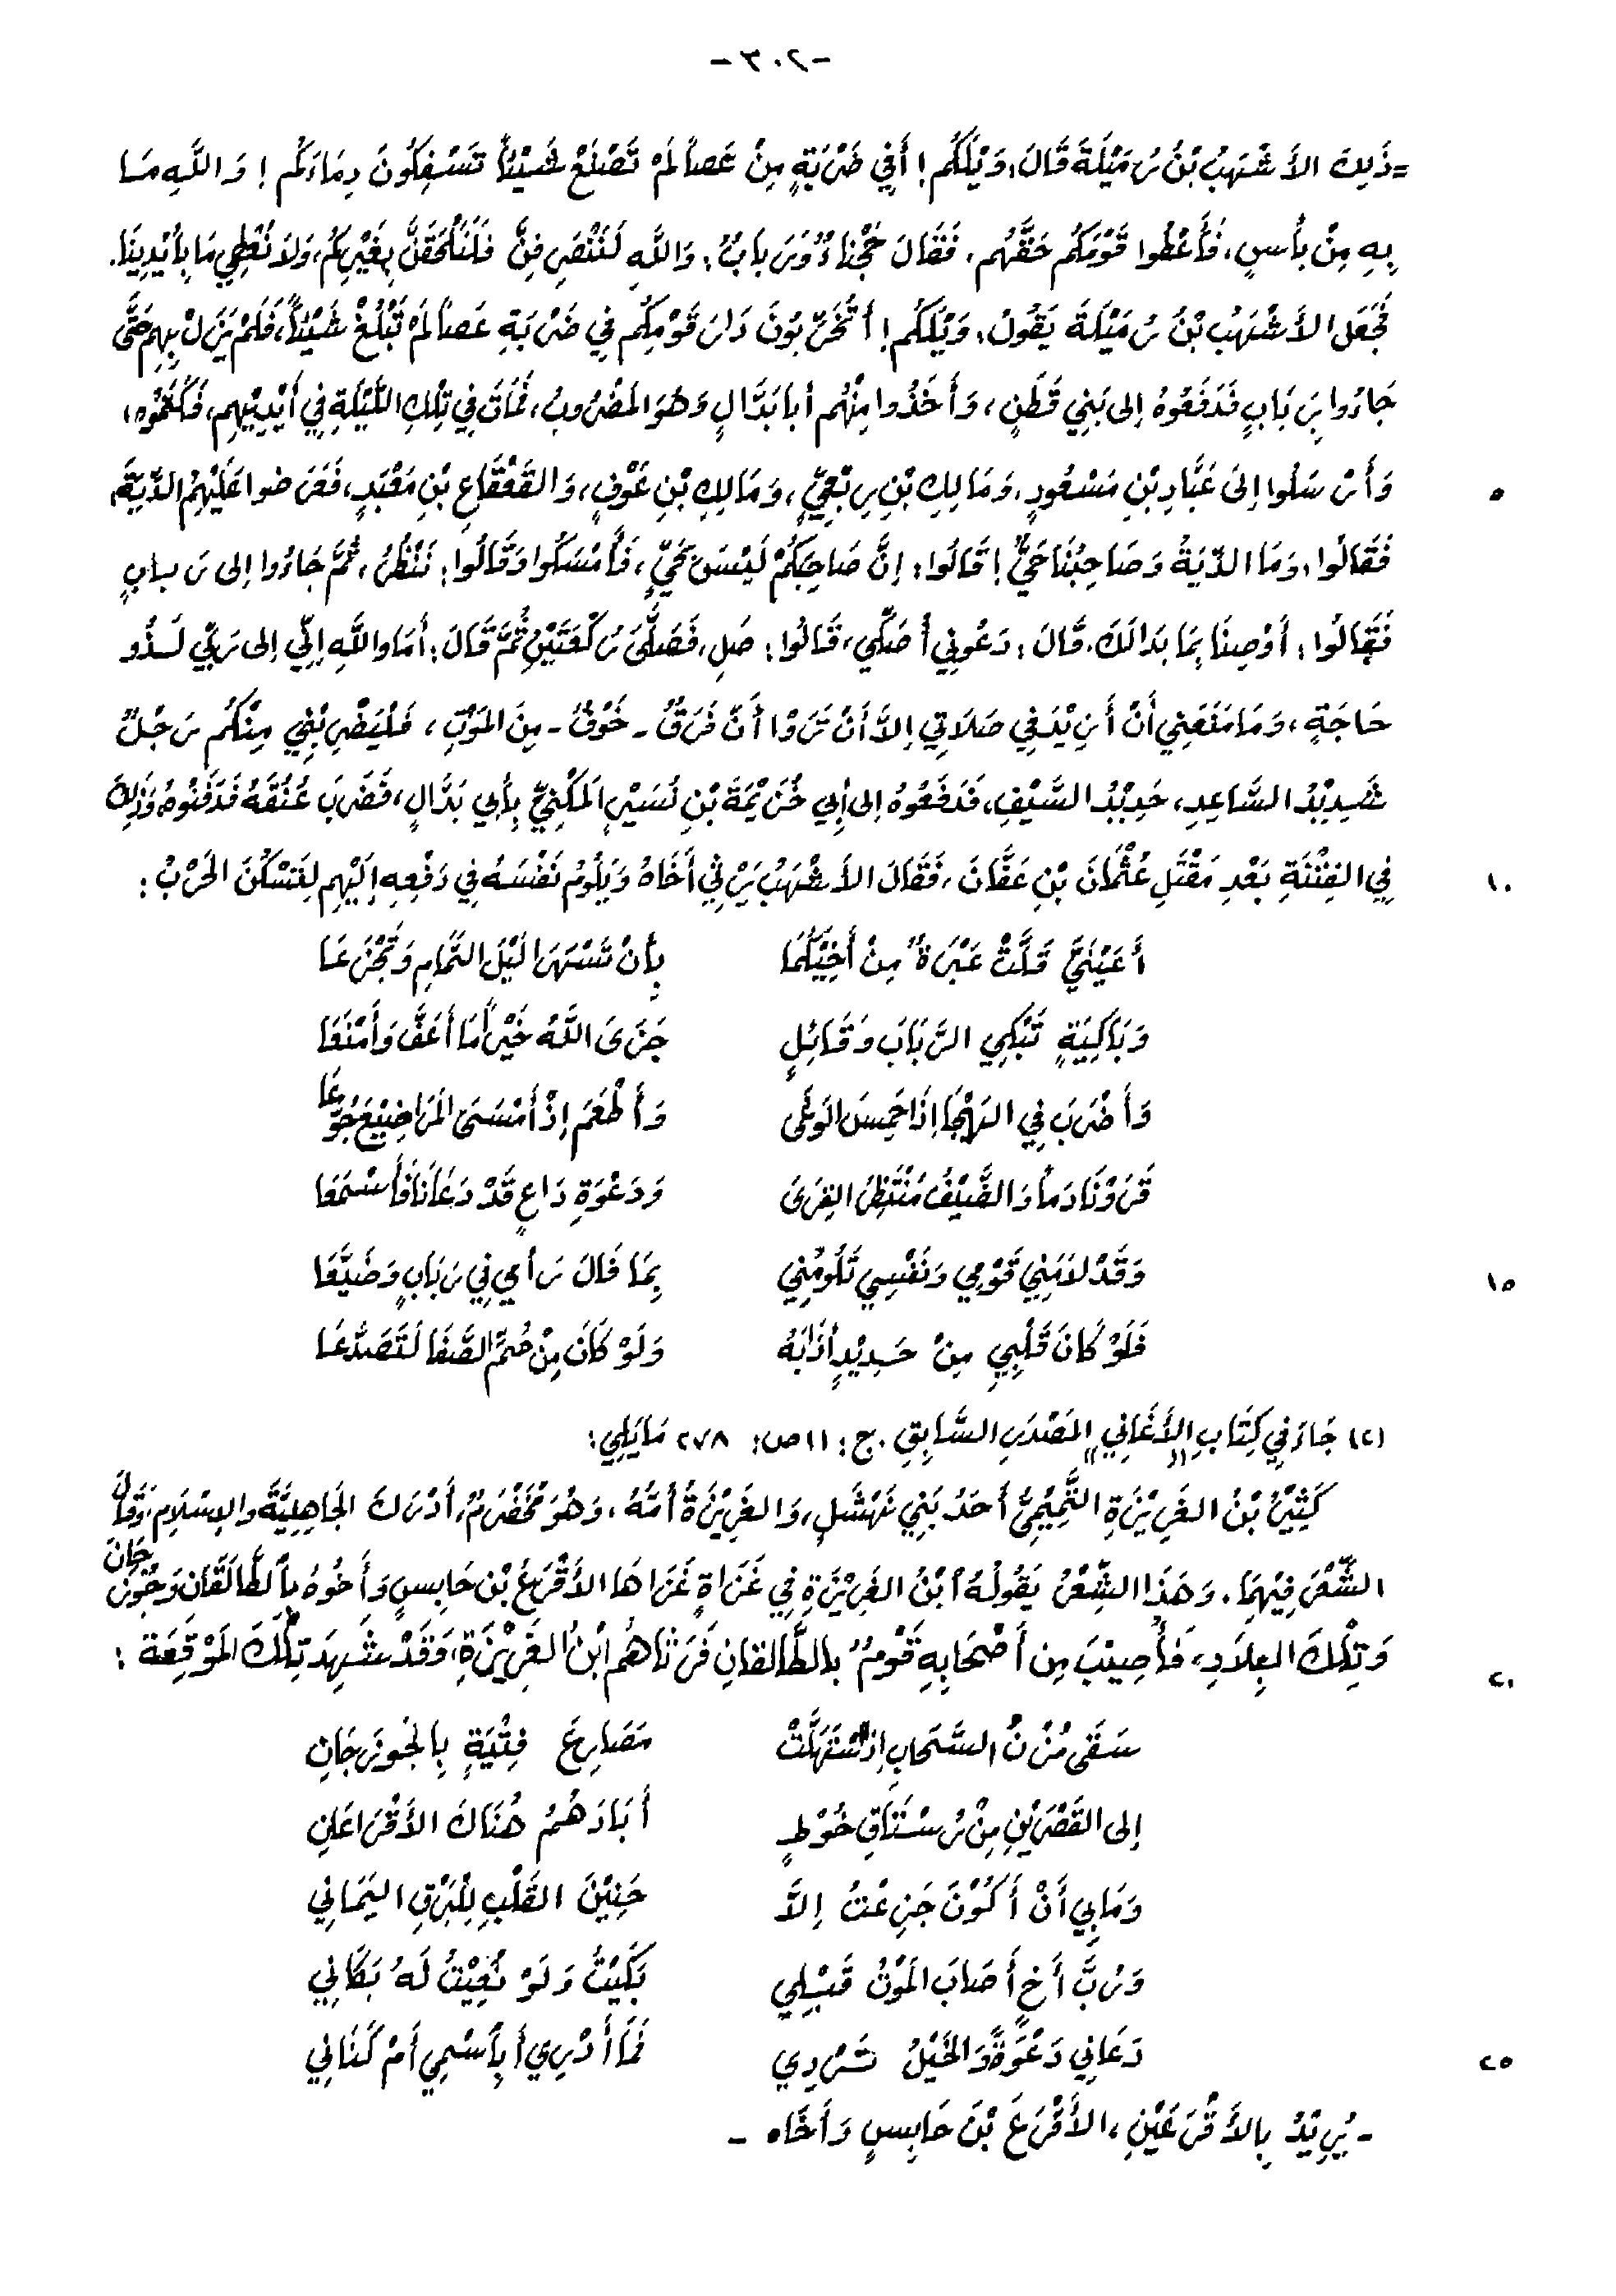 -٢٠٣-
=ذَلِكَ الأَشْهَبُ بْنُ رُمَيْلَةَ قَالَ: وَيْلَكُم! أَفِي ضَرْبَةٍ مِنْ عَصاً لَمْ تَصْنَعْ شَيْئاً تَسْفِكُونَ دِمَاءَكُم! وَاللَّهِ مَا
بِهِ مِنْ بأْسٍ، فَأَعْطُوا قَوْمَكُم حَقَّهُم. فَقَالَ حَجْنَاءُ وَرَبَابٌ: وَاللَّهِ لَنَنْصَرِفِنَّ فَلَنَلْحَقَنَّ بِغَيْرِكُم، وَلاَ نُعْطِي مَا بِأَيْدِيْنَا.
فَجَعَلَ الأَشْهَبُ بْنُ رُمَيْلَةَ يَقُولُ: وَيْلَكُم! أَتُخَرِّبُونَ دَارَ قَوْمِكُم فِي ضَرْبَةِ عَصاً لَمْ تَبْلُغْ شَيْئاً، فَلَمْ يَزَلْ بِهِم حَتَّى
جَاءُوا بِرَبَابٍ فَدَفَعُوهُ إلى بَنِي قَطَنٍ، وَأَخَذُوا مِنْهُم أبا بَدَّالٍ وَهُوَ المَضْرُوبُ، فَمَاتَ فِي تِلْكَ اللَّيْلَةِ فِي أَيْدِيْهِم، فَكَتَمُوهُ،
وَأَرْسَلُوا إلىَ عَبَّادِ بْنِ مَسْعُودٍ، وَمَالِكِ بْنِ رِبْعِيٍّ، وَمَالِكِ بْنِ عَوْفٍ، وَالقَعْقَاعِ بْنِ مَعْبَدٍ، فَعَرَضُوا عَلَيْهِمُ الدِّيَةَ، ٥
فَقَالُوا: وَمَا الدِّيَةُ وَصَاحِبُنَا حَيٌّ! قَالُوا: إنَّ صَاحِبَكُمْ لَيْسَ بَحَيٍّ، فَأَمْسَكُوا وَقَالُوا: نَنْظُرُ، ثُمَّ جَاءُوا إلى رَبابٍ
فَقَالُوا: أَوْصِنَا بِمَا بَدَا لَكَ. قَالَ: دَعُونِي أُصَلِّي، قَالُوا: صَلِ، فَصَلَّىَ رَكْعَتَيْنِ ثُمَّ قَالَ: أَمَا وَاللَّهِ إنِّي إلى رَبِّي لَذُو
حَاجَةٍ، وَمَا مَنَعَنِي أَنْ أَزِيْدَ فِي صَلَاتِي إلاَّ أَنْ تَرَوْا أَنّ فَرَقٌ - خَوْفٌ - مِنَ المَوْتِ، فَلْيَضْرِبْنِي مِنْكُم رَجُلٌ
شَدِيْدُ السَّاعِدِ، حَدِيْدُ السَّيْفِ، فَدَفَعُوهُ إلى أَبِي خُزَيْمَةَ بْنِ نُسَيْرٍ المَكْنِيِّ بِأَبِي بَدَّالٍ، فَضَرَبَ عُنُقَهُ فَدَفَنُوهُ وَذَلِكَ
فِي الفِتْنَةِ بَعْدِ مَقْتَلِ عُثْمَانَ بْنِ عَفَّانَ، فَقَالَ الأَشْهَبُ يَرْثِي أَخَاهُ وَيَلُومُ نَفْسَهُ فِي دَفْعِهِ إلَيْهِم لِتَسْكُنَ الحَرْبُ: ١٠
أَعَيْنَيَّ قَلَّتْ عَبْرَةً مِنْ أَخِيْكُمَا بِأَنْ تَسْهَرَا لَيْلَ التَّمَامِ وَتَجْزَعَا
وَبَاكِيَةٍ تَبْكِي الرَّبَابَ وَقَائِلٍ جَزَىَ اللَّهُ خَيْراً مَا أَعَفَّ وَأَمْنَعَا
وَأَضْرَبَ فِي الهَيْجَا إذَا حَمِسَ الوَغَى وَأَطْعَمَ إذْ أَمْسَىَ المَرَاضِيْعَ جُوَّعَا
قَرَوْنَا دَماً وَالضَّيْفُ مُنْتَظِرُ القِرَىَ وَدَعْوَةِ دَاعٍ قَدْ دَعَانَا فَأَسْمَعَا
وَقَدْ لاَمَنِي قَوْمِي وَنَفْسِي تَلُومُنِي بِمَا فَالَ رَأْيي فِي رَبَابٍ وَضَيَّعَا ١٥
فَلَوْ كَانَ قَلْبِي مِنْ حَدِيْدٍ أَذَابَهُ وَلَوْ كَانَ مِنْ صُمِّ الصَّفَا لَتَصَدَّعَا
(٢) جَاءَ فِي كِتَابِ "الأَغَانِي" المَصْدَرِ السَّابِقِ. ج: ١١ ص: ٢٧٨ مَا يَلِي:
كَثِيْرُ بْنُ الغَرِيْزَةِ التَّمِيْمِيُّ أَحَدُ بَنِي نَهْشَلٍ، وَالغَرِيْزَةُ أُمُّهُ، وَهُوَ مُخَضْرَمٌ، أَدْرَكَ الجَاهِلِيَّةَ والإسْلاَمِ، وَقَالَ
الشِّعْرَ فِيْهِمَا. وَهَذَا الشِّعْرُ يَقُولُهُ ابْنُ الغَرِيْزَةِ فِي غَزَاةٍ غَزَاهَا الأَقْرَعُ بْن حَابِسٍ وَأَخُوهُ بالطَّالَقَانِ وَجُوزَجَانَ
وَتِلْكَ البِلاَدِ، فَأُصِيْبَ مِن أَصْحَابِهِ قَوْمٌ بالطَّالقانِ فَرَثَاهُم ابْنُ الغَرِيْزَةِ، وَقَدْ شَهِدَ تِلْكَ المَوْقِعَةَ: ٢٠
سَقَى مُزْنُ السَّحَابِ إذَا اسْتَهَلَّتْ مَصَارِعَ فِتْيَةٍ بِالجُوزَجَانِ
إلى القَصْرَيْنِ مِنْ رُسْتَاقِ خُوْطٍ أَبَادَهُمُ هُنَاكَ الأَقْرَاعَانِ
وَمَابِي أَنْ أَكُوْنَ جَزِعْتُ إلاَّ حَنِيْنَ القَلْبِ لِلْبَرْقِ اليَمَانِي
وَرُبَّ أَخٍ أَصَابَ المَوْتُ قَبْلِي بَكَيْتُ وَلَوْ نُعِيْتُ لَهُ بَكَانِي
دَعَانِي دَعْوَةً وَالخَيْلُ تَرْدِي فَمَا أَدْرِي أَبِاسْمِي أَمْ كَنَانِي ٢٥
- يُرِيْدُ بِالأَقْرَعَيْنِ، الأَقْرَعَ بْنَ حَابِسٍ وَأَخَاه -